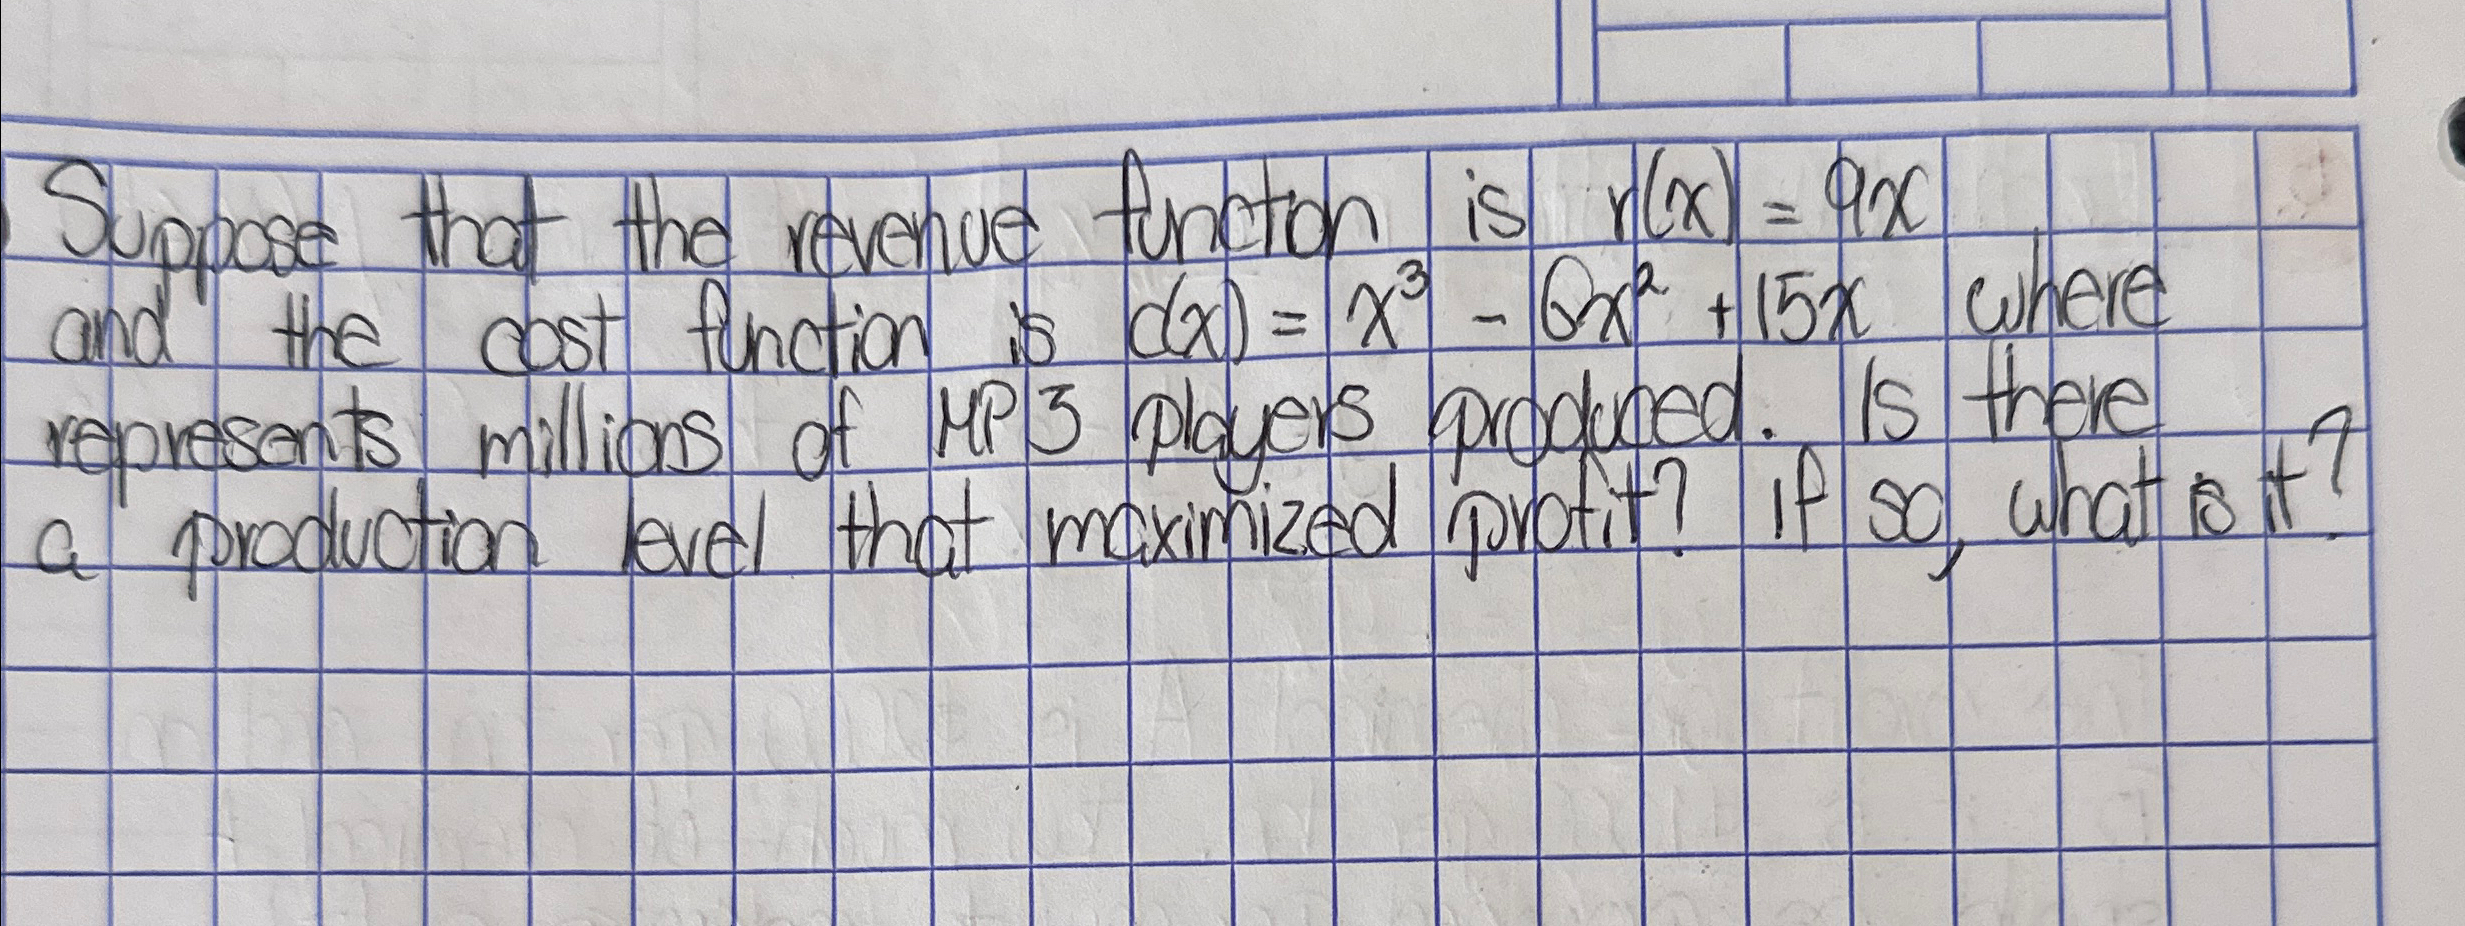 Suppose that the revenue functon is r(x) = 9x
and the cost function is c(x) = x³ - 6x² + 15x where
represents millions of MP3 players produced. Is there
a production level that maximized profit? if so, what is it?